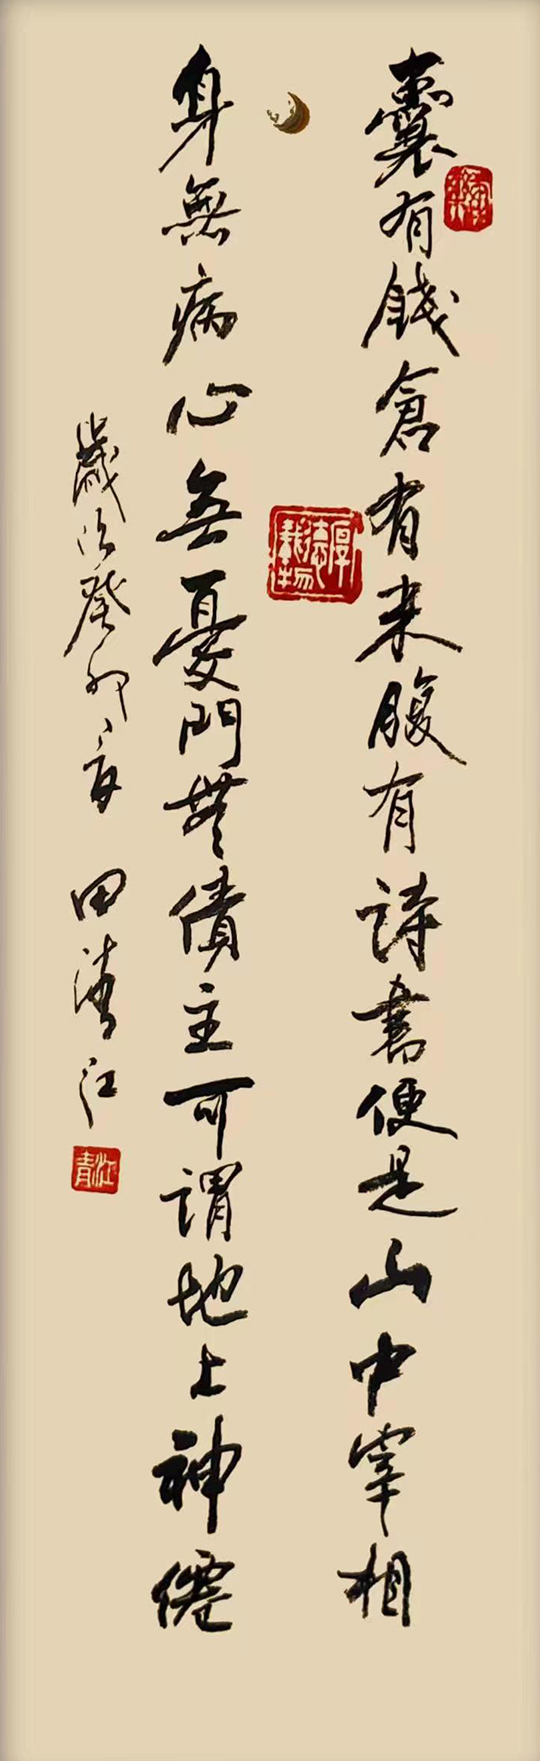 囊有錢倉有米腹有詩書便是山中宰相
身無病心無憂門無債主可謂地上神僊
歲次癸卯夏 田清江
厚德載物
江青